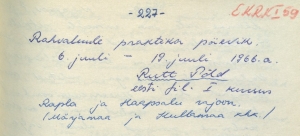 -227-
EKRK I 69
Rahvaluule praktika päevik.
6. juuli - 19. juuli 1966. a.
Rutt Põld
eesti fil. I kursus
Rapla ja Haapsalu rajoon.
(Märjamaa ja Kullamaa khk.)